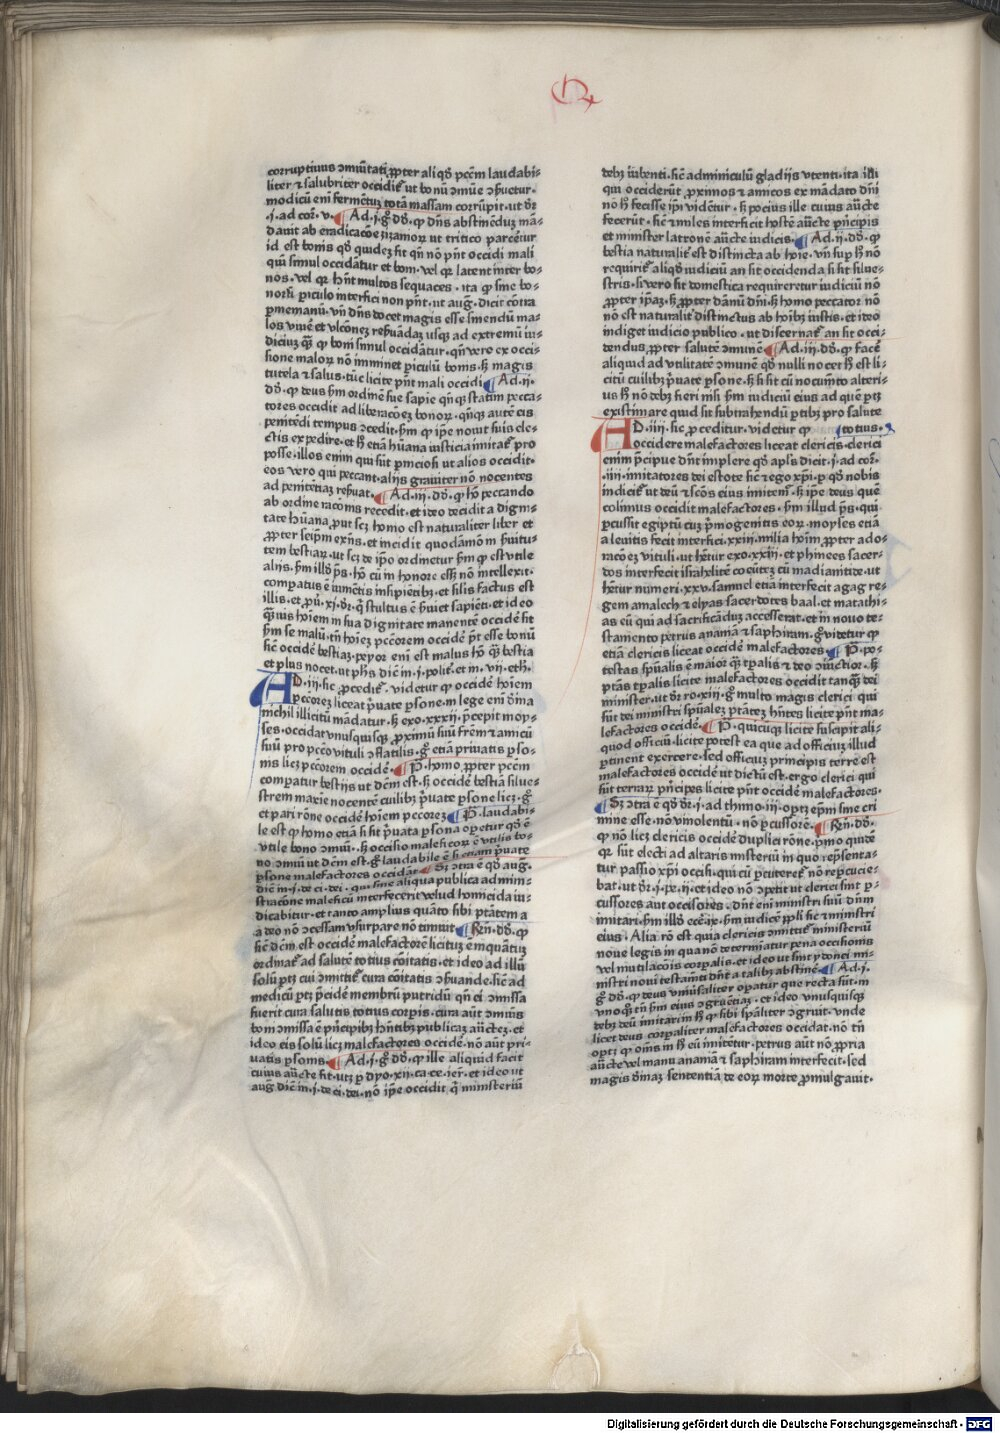 Q
corruptiuus ɔmūitatis ꝓpter aliqḋ pctm̄ laudabi-
liter ⁊ salubriter occidit̄ ut bonū ɔmūe ɔẜuetur·
modicū eni fermentuʒ totā massam corrūpit· ut dr̄
·i· ad cor̄· v· ¶ Ad·i·gͦ dd̄· ꝙ dn̄s abstinēduʒ mā-
dauit ab eradicac̄oe zizanioꝝ ut tritico parcētur
id est bonis qḋ quideʒ fit qn̄ nō pn̄t occidi mali
quī simul occidātur et boni· vel qꝛ latent inter bo-
nos· vel qꝛ hn̄t multos sequaces· ita ꝙ sine bo-
noꝝ periculo interfici non pn̄t· ut auḡ· dicit cōtra
ꝑmemanū· vn̄ dn̄s docet magis esse sinendū ma-
los viuē et ulc̄oneʒ reẜuādaʒ usqʒ ad extremū iu-
diciuʒ qͣʒ ꝙ boni simul occidātur· qn̄ vero ex occi-
sione maloꝝ nō imminet piculū bonis· sʒ magis
tutela ⁊ salus· tūc licite pn̄t mali occidi ¶ Ad·ii·
dd̄· ꝙ deus ẜm ordinē sue sapiē qn̄qʒ statim pecca-
tores occidit ad liberac̄oeʒ bonoꝝ· qn̄qʒ autē eis
penitēdi tempus ɔcedit· ẜm ꝙ ip̄e nouit suis ele-
ctis expedire· et hͦ etiā hūana iusticia imitat̄ pro
posse· illos enim qui sūt ꝑniciosi ut alios occidit·
eos vero qui peccant· alijs grauiter nō nocentes
ad penitētiaʒ reẜuat· ¶ Ad·iii·dd̄· ꝙ hō peccando
ab ordine rac̄onis recedit· et ideo decidit a digni-
tate hūana ꝓut scʒ homo est naturaliter liber et
ꝓpter seip̄m exn̄s· et incidit quodāmō in ẜuitu-
tem bestiaꝝ· ut scʒ de ip̄o ordinetur ẜm ꝙ est vtile
alijs· ẜm illḋ p̄s· hō cū in honore ess̄ nō intellexit·
compatus ē iumētis insipiētibʒ· et silis factus est
illis· et ꝓu̇· xj· dr̄· q̇ stultus ē ẜuiet sapiēti· et ideo
qͣʒuis hoīem in sua dignitate manentē occidē sit
ẜm se malū· tn̄ hoīeʒ pctōrem occidē pt̄ esse bonū
sic̄ occidē bestiaʒ· peyor eni est malus hō qͣʒ bestia
et plus nocet· ut ph̄s dic̄ in·j· polit̄· et in· vij· eth̄·
AD·iij·sic ꝓcedit̄· videtur ꝙ occidē hoīem
pctōreʒ liceat p̄uate ꝑsone· in lege eni diīna
nichil illicitū mādatur· sʒ exo· xxxij· p̄cepit moy-
ses· occidat unusquisqʒ ꝓximū suū fr̄em ⁊ amicū
suū pro pctō vituli ɔflatilis· gͦ etiā priuatis ꝑso-
nis licʒ pctōrem occidē· ¶ P̄· homo ꝓpter pctm̄
compatur bestijs ut dc̄m est· sʒ occidē bestiā silue-
strem maxīe nocentē cuilibʒ p̄uate ꝑsone licʒ· gͦ
et pari rōne occidē hoīem pctōreʒ ¶ P̄· laudabi-
le est ꝙ homo etiā si sit p̄uata ꝑsona oꝑetur qḋ ē
vtile bono ɔmūi· sʒ occisio maleficoꝝ ē vtilis bo-
no ɔmūi ut dc̄m est· gͦ laudabile ē si etiam p̄uate
ꝑsone malefactores occidāt ¶ Sʒ ɔtra ē qḋ auḡ·
dic̄ in·j· de ci· dei· qui sine aliqua publica admini-
strac̄one maleficū interfecerit velud homicida iu-
dicabitur· et tanto amplius quāto sibi ptātem a
a deo nō ɔcessam vsurpare nō timuit ¶ Rn̄· dd̄· ꝙ
sic̄ dc̄m est occidē malefactorē licituʒ ē inquātuʒ
ordinat̄ ad salutē totius cōitatis· et ideo ad illū
solū ptʒ cui ɔmittit̄ cura cōitatis ɔẜuande· sic̄ ad
medicū ptʒ p̄cidē membrū putridū· qn̄ ei ɔmissa
fuerit cura salutis totius corpis· cura aūt ɔmūis
boni ɔmissa ē pn̄cipibʒ hn̄tibʒ publicaʒ auc̄teʒ· et
ideo eis solū licʒ malefactores occidē· nō aūt pri-
uatis ꝑsonis· ¶ Ad·j·gͦ dd̄· ꝙ ille aliquid facit
cuius auc̄te fit· utʒ ꝑ dyo· xij· ca· ce· ier̄· et ideo ut
auḡ· dic̄ in·j· de ci· dei· nō ip̄e occidit q̇ ministeriū
debʒ iubenti· sic̄ adminiculū gladijs vtenti· ita illi
qui occiderūt ꝓximos ⁊ amicos ex mādato dn̄i
nō hͦ fecisse ip̄i vidētur· sʒ pocius ille cuius auc̄te
fecerūt· sic̄ ⁊ miles interficit hostē auc̄te pn̄cipis
et minister latronē auc̄te iudicis· ¶ Ad·ij·dd̄· ꝙ
bestia naturalit̄ est distincta ab hoīe· vn̄ suꝑ hͦ nō
requirit̄ aliqḋ iudiciū an sit occidenda si sit silue-
stris· si vero sit domestica requireretur iudiciū nō
ꝓpter ip̄aʒ· sʒ ꝓpter dānū dn̄i· sʒ homo peccator nō
nō est naturalit̄ distinctus ab hoībʒ iustis· et ideo
indiget iudicio publico· ut discernat̄ an sit occi-
dendus ꝓpter salutē ɔmunē ¶ Ad·iij·dd̄· ꝙ facē
aliquid ad vtilitatē ɔmunē qḋ nulli nocet hͦ est li-
citū cuilibʒ p̄uate ꝑsone· sʒ si sit cū nocumēto alteri-
us hͦ nō debʒ fieri nisi ẜm iudiciū eius ad quē ptʒ
existimare quid sit subtrahendū ꝑtibʒ pro salute
AD·iiij·sic ꝓceditur· videtur ꝙ (totius·
occidere malefactores liceat clericis· clerici
enim p̄cipue dn̄t implere qḋ apl̄s dicit·j· ad cor̄·
·iiij· imitatores dei estote sic̄ ⁊ ego xp̄i· ꝑ qḋ nobis
indicit̄ ut deū ⁊ scōs eius imitem̄· sʒ ip̄e deus quē
colimus occidit malefactores· ẜm illud p̄s· qui
ꝑcussit egiptū cuʒ p̄mogenitis eoꝝ· moyses etiā
a leuitis fecit interfici· xxiij· milia hoīm ꝓpter ado-
rac̄oeʒ vituli· ut hētur exo· xxxij· et phinees sacer-
dos interfecit israhelitē coeūteʒ cū madianitide· ut
hētur numeri· xxv· samuel etiā interfecit agag re-
gem amalech ⁊ elyas sacerdotes baal· et matathi-
as eū qui ad sacrificāduʒ accesserat· et in nouo te-
stamento petrus ananiā ⁊ saphiram· gͦ videtur ꝙ
etiā clericis liceat occidē malefactores ¶ P̄· po-
testas spūalis ē maior qͣʒ tp̄alis ⁊ deo ɔiūctior· sʒ
ptās tp̄alis licite malefactores occidit tanqͣʒ dei
minister· ut dr̄ ro· xiij· gͦ multo magis clerici qui
sūt dei ministri spūaleʒ ptāteʒ hn̄tes licite pn̄t ma-
lefactores occidē· ¶ P̄· quicūqʒ licite suscipit ali-
quod officiū· licite potest ea que ad officiuʒ illud
ꝑtinent exercere· sed officiuʒ principis terre est
malefactores occidē ut dictū est· ergo clerici qui
sūt terraꝝ pn̄cipes licite pn̄t occidē malefactores·
¶ Sʒ ɔtra ē qḋ dr̄·j· ad thimo· iij· opʒ epm̄ sine cri
mine esse· nō vinolentū· nō ꝑcussorē· ¶ Rn̄· dd̄·
ꝙ nō licʒ clericis occidē duplici rōne· p̄mo quidē
qꝛ sūt electi ad altaris misteriū in quo rep̄senta-
tur passio xp̄i occisi· qui cū ꝑcuteret̄ nō reꝑcucie-
bat· ut dr̄·j· pe· ij· et ideo nō ɔpetit ut clerici sint ꝑ-
cussores aut occisores· dn̄t eni ministri suū dn̄m
imitari· ẜm illḋ ecc̄i· x· ẜm iudicē ppl̄i sic ⁊ ministri
eius· Alia rō est quia clericis ɔmittit̄ ministeriū
noue legis in qua nō determīatur pena occisionis
vel mutilac̄ois corꝑalis· et ideo ut sint ydonei mi-
nistri noui testamīti dn̄t a talibʒ abstinē· ¶ Ad·j·
gͦ dd̄· ꝙ deus vniūsaliter oꝑatur que recta sūt· in
vnoqʒ tn̄ ẜm eius ɔgruētiaʒ· et ideo vnusquisqʒ
debʒ deū imitari in hͦ ꝙ sibi spāliter ɔgruit· vnde
licet deus corꝑaliter malefactores occidat· nō tn̄
optʒ ꝙ om̄s in hͦ eū imitētur· petrus aūt nō ꝓpria
auc̄te vel manu ananiā ⁊ saphiram interfecit· sed
magis diīnaʒ sententiā de eoꝝ morte ꝓmulgauit·
Digitalisierung gefördert durch die Deutsche Forschungsgemeinschaft - DFG